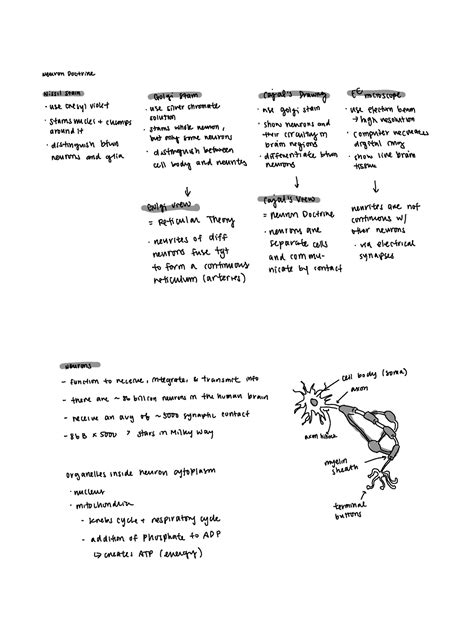 Neuron Doctrine
Nissl Stain
· use cresyl violet
· stains nuclei + clumps
around it
· distinguish btwn
neurons and glia
Golgi Stain
· use silver chromate
solution
· stains whole neuron,
but only some neurons
· distinguish between
cell body and neurites
↓
Golgi View
= Reticular Theory
· neurites of diff
neurons fuse tgt
to form a continuous
reticulum (arteries)
Cajal's Drawing
· use golgi stain
· show neurons and
their circuitry in
brain regions
· differentiate btwn
neurons
↓
Cajal's View
= neuron Doctrine
· neurons are
separate cells
and commu-
nicate by contact
microscope
· use electron beam
→ high resolution
· computer
digital
· show live brain
tissue
↓
neurites are not
continuous w/
other neurons
· via electrical
synapses
Neurons
- function to receive, integrate, & transmit info
- there are ~ 86 billion neurons in the human brain
- receive an avg of ~ 5000 synaptic contact
- 86B x 5000 ? stars in Milky Way
cell body (soma)
axon
axon
myelin
sheath
terminal
buttons
organelles inside neuron cytoplasm
· nucleus
· mitochondria
- Krebs cycle + respiratory cycle
- addition of phosphate to ADP
↳ creates ATP (energy)